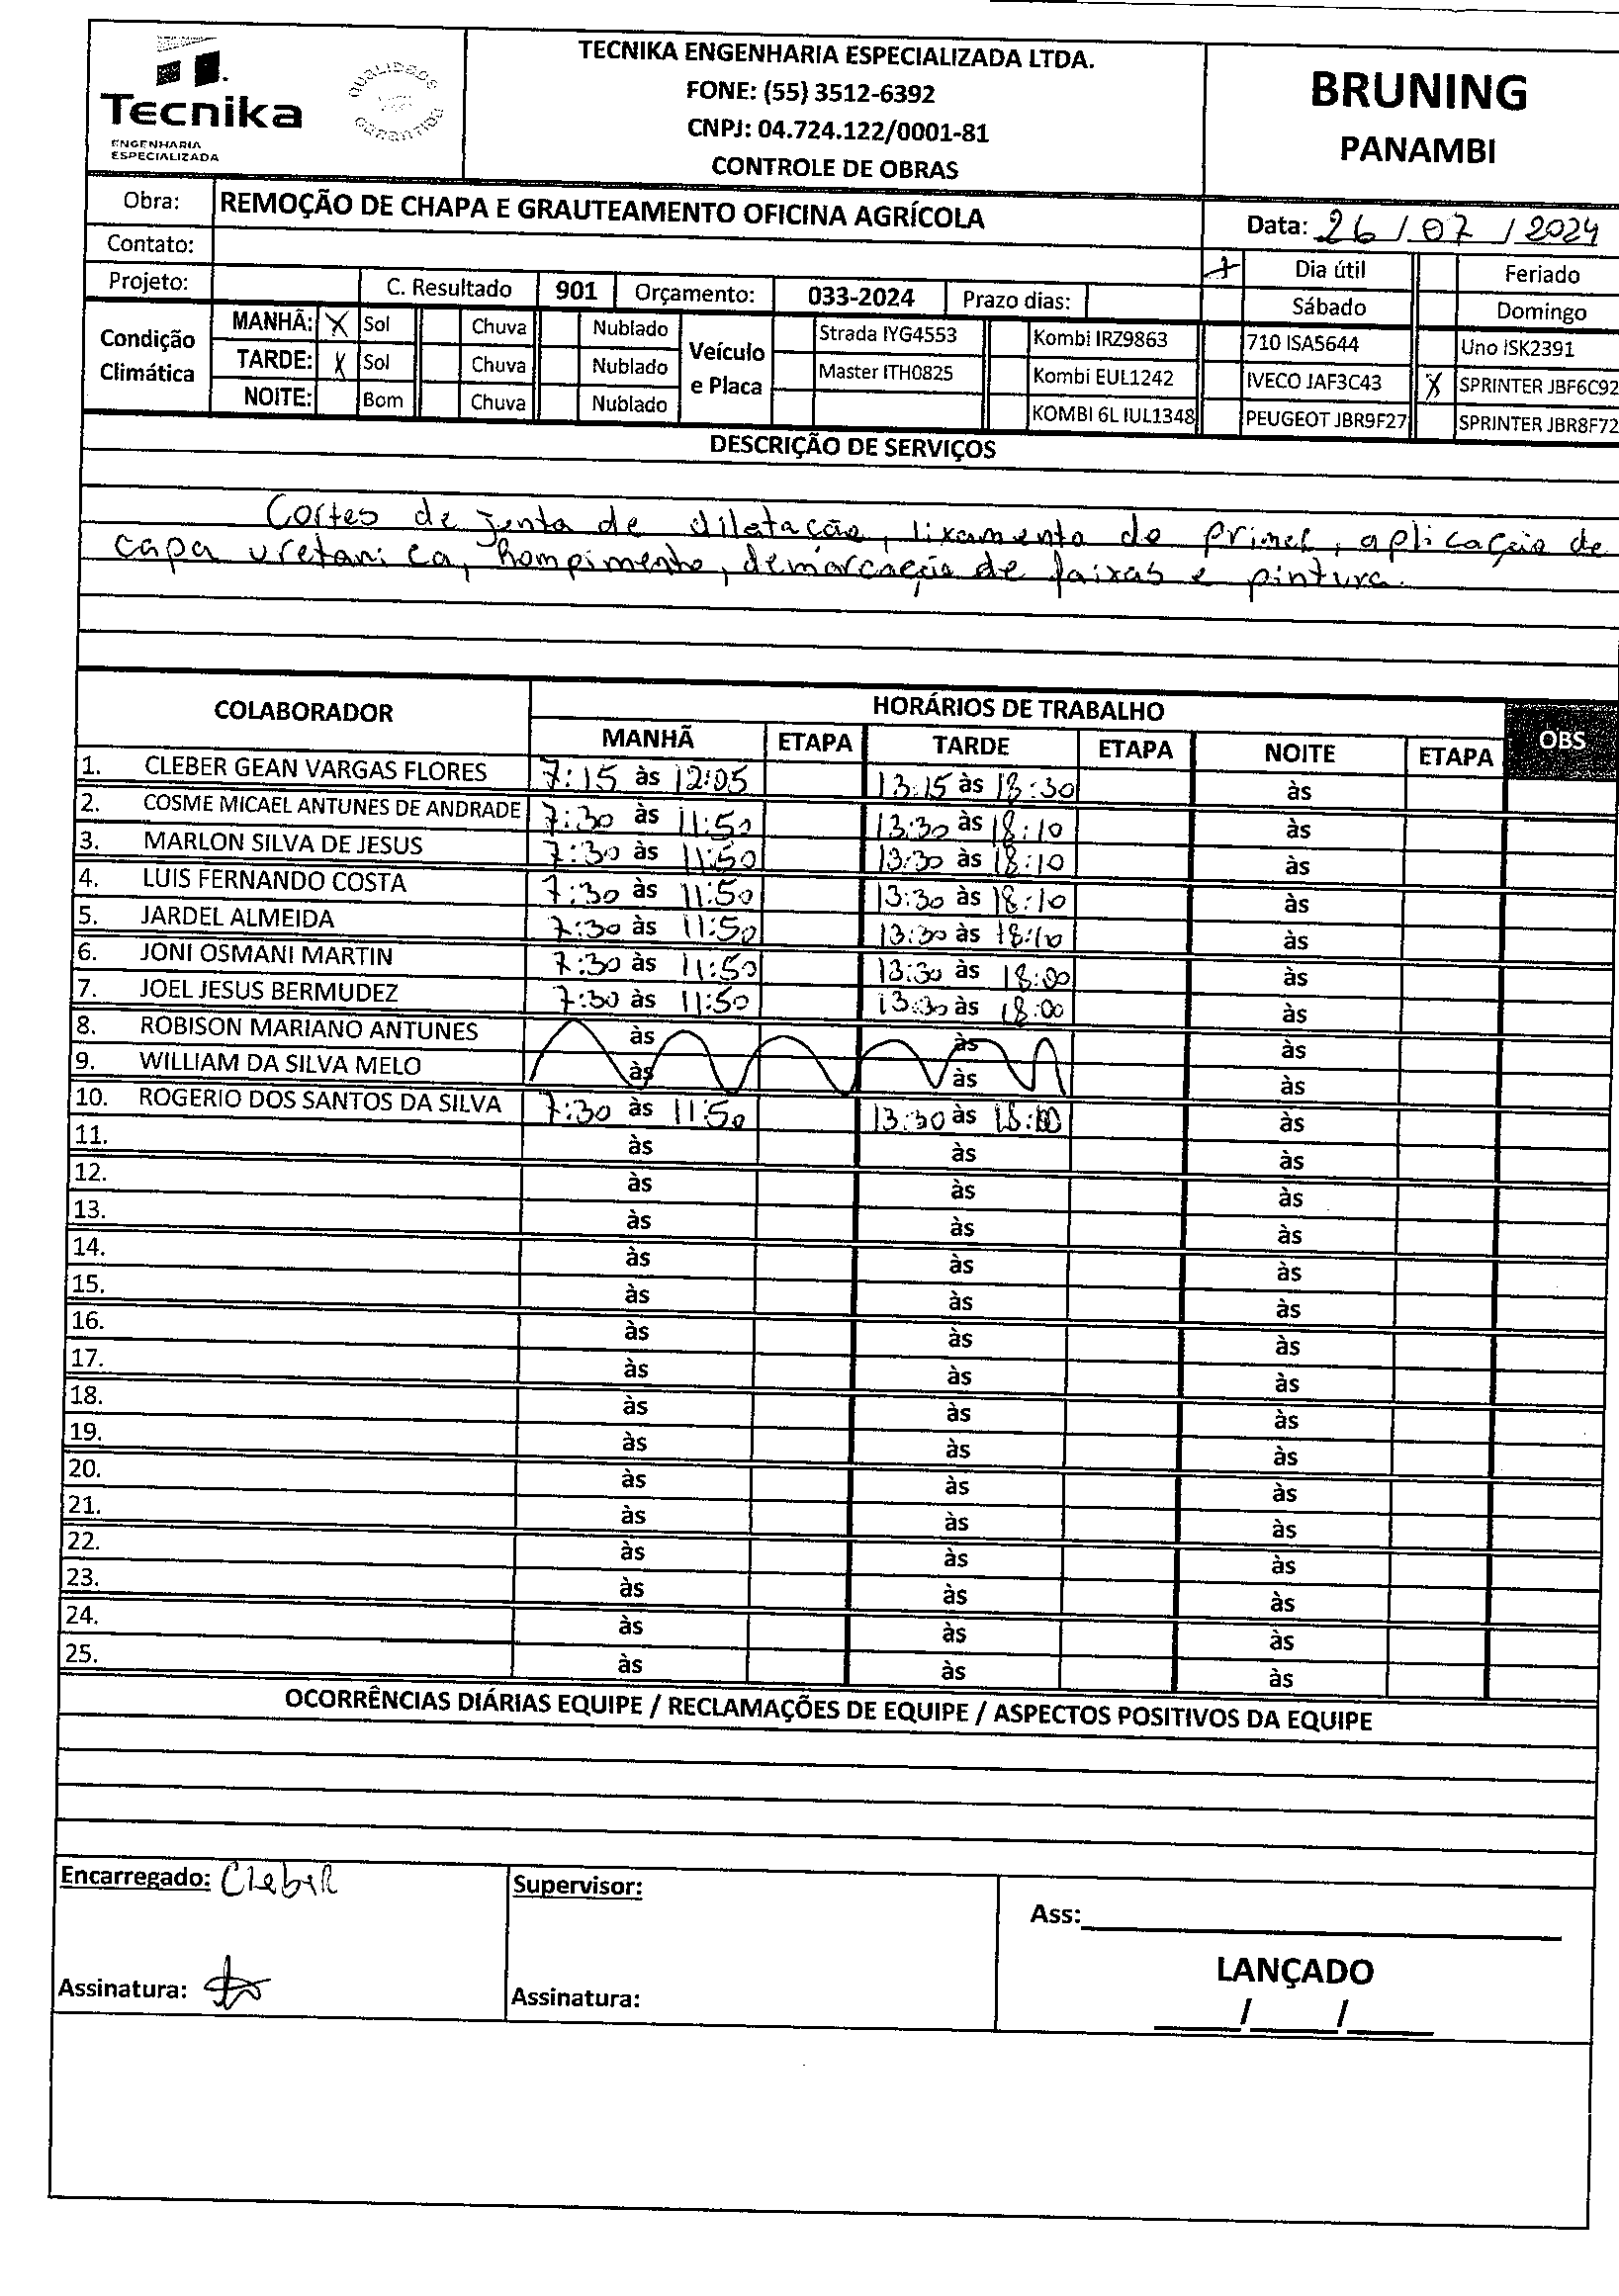 Tecnika
ENGENHARIA
ESPECIALIZADA
QUALIDADE
GARANTIDA
TECNIKA ENGENHARIA ESPECIALIZADA LTDA.
FONE: (55) 3512-6392
CNPJ: 04.724.122/0001-81
CONTROLE DE OBRAS
BRUNING
PANAMBI
Obra: REMOÇÃO DE CHAPA E GRAUTEAMENTO OFICINA AGRÍCOLA
Data: 26 / 07 / 2024
Contato:
X Dia útil Feriado
Projeto: C. Resultado 901 Orçamento: 033-2024 Prazo dias:
Sábado Domingo
Condição Climática
MANHÃ: X Sol Chuva Nublado
TARDE: X Sol Chuva Nublado
NOITE: Bom Chuva Nublado
Veículo e Placa
Strada IYG4553 Kombi IRZ9863 710 ISA5644 Uno ISK2391
Master ITH0825 Kombi EUL1242 IVECO JAF3C43 X SPRINTER JBF6C92
KOMBI 6L IUL1348 PEUGEOT JBR9F27 SPRINTER JBR8F72
DESCRIÇÃO DE SERVIÇOS
Cortes de junta de dilatação, lixamento do primer, aplicação de
capa uretanica, hompimento, demarcação de faixas e pintura.
COLABORADOR HORÁRIOS DE TRABALHO OBS
MANHÃ ETAPA TARDE ETAPA NOITE ETAPA
1. CLEBER GEAN VARGAS FLORES 7:15 às 12:05 13:15 às 18:30 às
2. COSME MICAEL ANTUNES DE ANDRADE 7:30 às 11:50 13:30 às 18:10 às
3. MARLON SILVA DE JESUS 7:30 às 11:50 13:30 às 18:10 às
4. LUIS FERNANDO COSTA 7:30 às 11:50 13:30 às 18:10 às
5. JARDEL ALMEIDA 7:30 às 11:50 13:30 às 18:10 às
6. JONI OSMANI MARTIN 7:30 às 11:50 13:30 às 18:00 às
7. JOEL JESUS BERMUDEZ 7:30 às 11:50 13:30 às 18:00 às
8. ROBISON MARIANO ANTUNES às às às
9. WILLIAM DA SILVA MELO às às às
10. ROGERIO DOS SANTOS DA SILVA 7:30 às 11:50 13:30 às às
11. às às às
12. às às às
13. às às às
14. às às às
15. às às às
16. às às às
17. às às às
18. às às às
19. às às às
20. às às às
21. às às às
22. às às às
23. às às às
24. às às às
25. às às às
OCORRÊNCIAS DIÁRIAS EQUIPE / RECLAMAÇÕES DE EQUIPE / ASPECTOS POSITIVOS DA EQUIPE
Encarregado: Cleber
Supervisor:
Ass:
LANÇADO
Assinatura:
Assinatura:
/ /